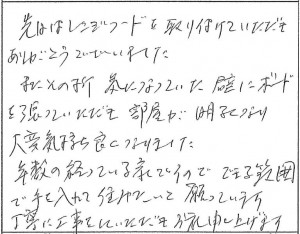 先日はレンジフードを取り付けていただき
ありがとうございました
またその折 気になっていた 壁にボード
を張っていただき 部屋が 明るくなり
大変気持ち良くなりました
年数の経っている家ですので できる範囲
で手を入れて住みたいと 願っています
丁寧に工事をしていただき お礼申し上げます